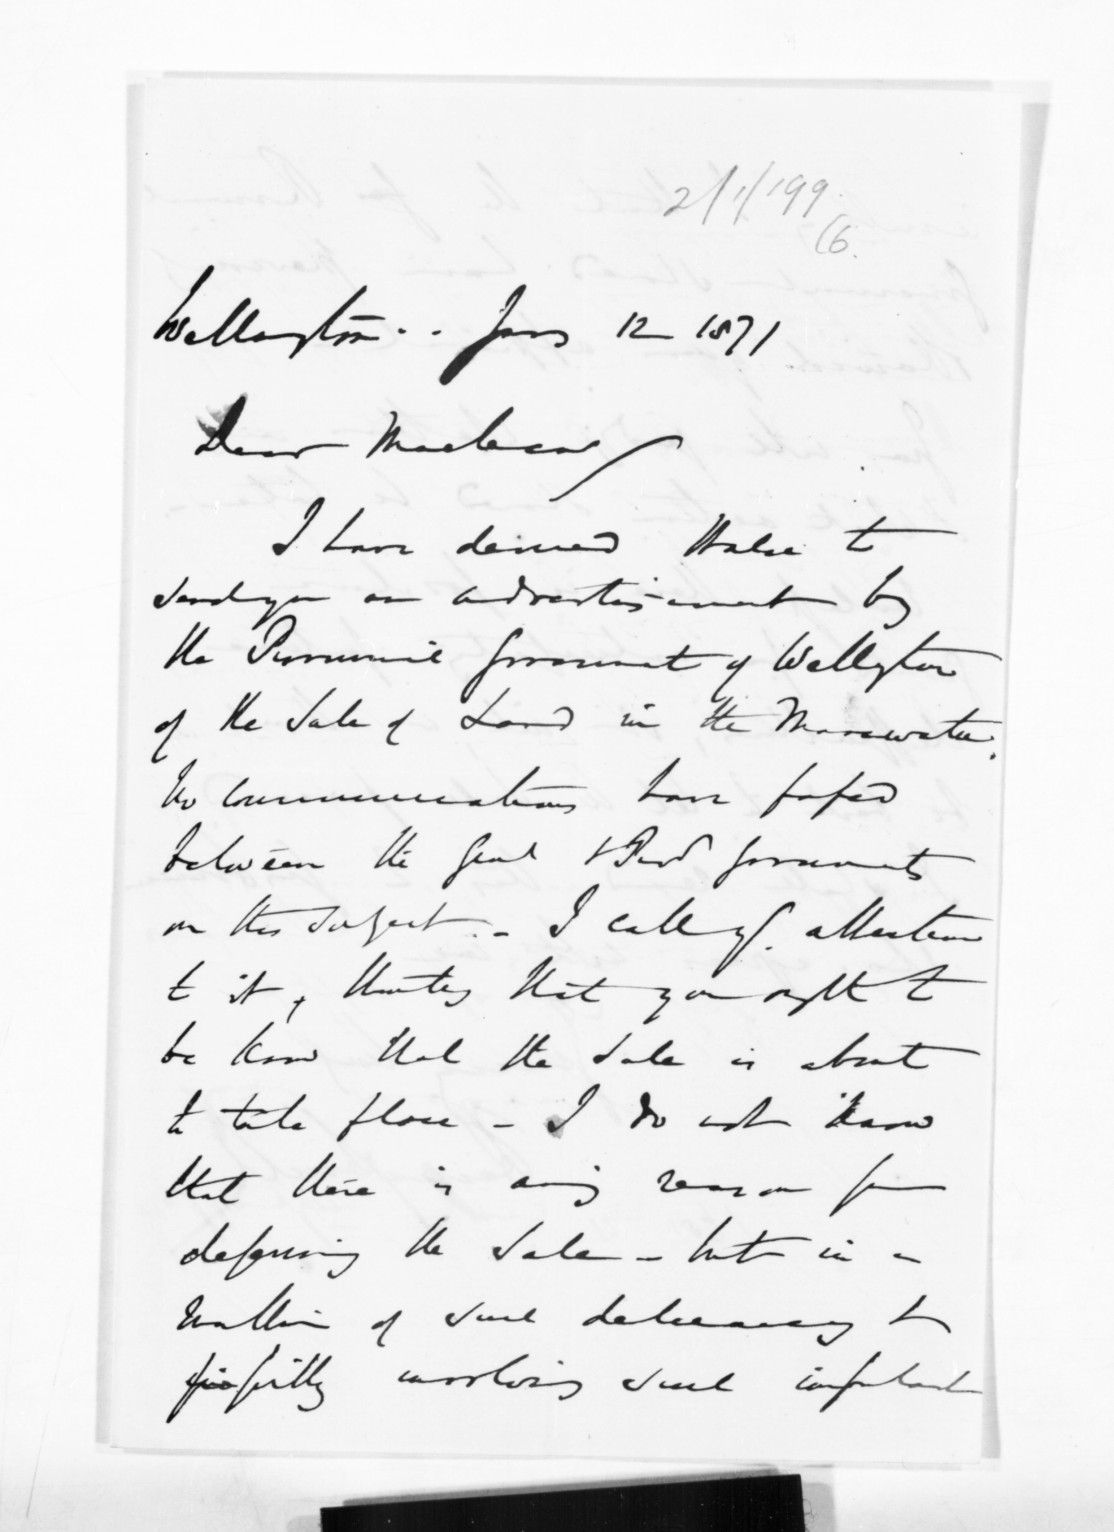 2/1/199
(6.
Wellington.. Jany 12 1871
Dear Maclean
I have desired Halse to
send you an advertisement by
the Provincial Government of Wellington
of the Sale of Land in the Manawatu.
No communications have passed
between the Genl & Provl governments
on this subject. - I call yr. attention
to it, thinking that you ought to
be know that the sale is about
to take place - I do not know
that there is any reason for
deferring the sale - but in a
matter of such delicacy &
possibly involving such important